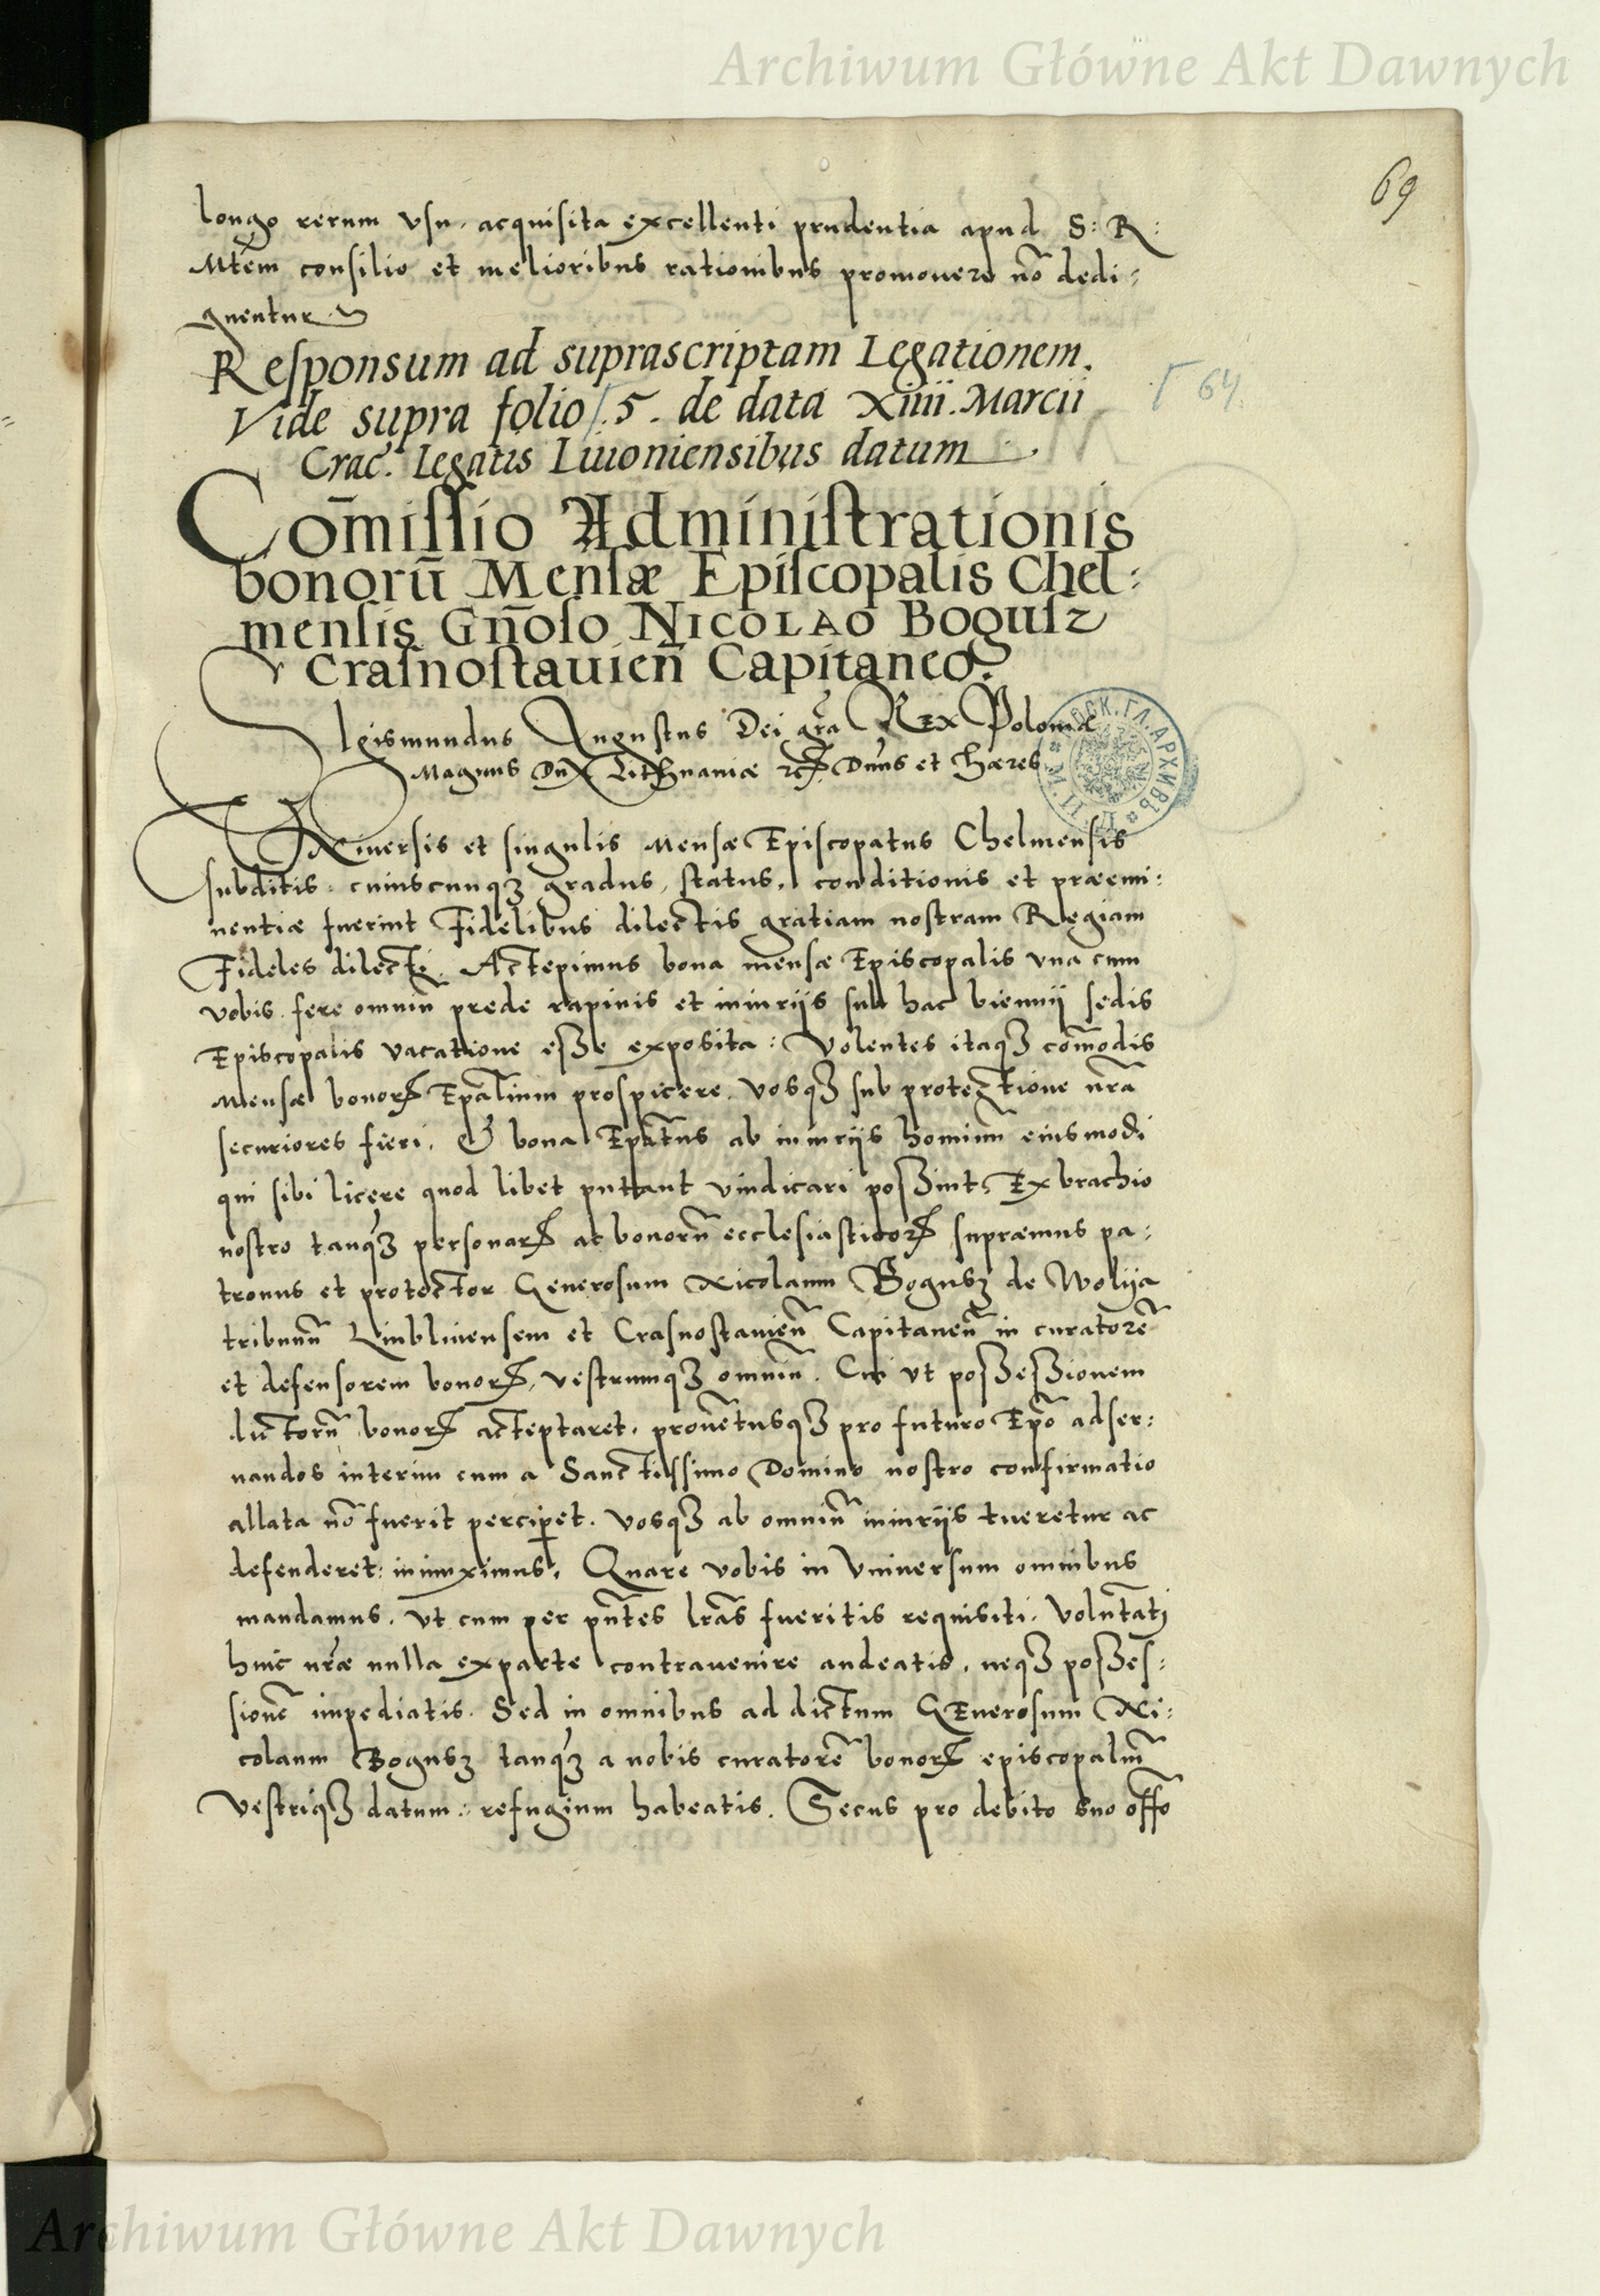 Archiwum Główne Akt Dawnych
69
longo rerum vsu, acquisita excellenti prudentia apud S: R:
Mtem consilio et melioribus rationibus promouere nō dedi:
gnentur
Responsum ad suprascriptam Legationem.
Vide supra folio 5. de data Xiiii. Marcii
64
Crac. Legatis Liuoniensibus datum.
Com̄issio Administrationis
bonorū Mensæ Episcopalis Chel:
mensis Gn̄oso Nicolao Bogusz
Crasnostauien̄ Capitaneo.
Sigismundus Augustus Dei grã Rex Poloniæ
Magnus Dux Lithuaniæ etc. Dn̄us et Hæres
Vniuersis et singulis Mensæ Episcopatus Chelmensis
subditis cuiuscunqꝫ gradus, status, conditionis et præemi:
nentiæ fuerint Fidelibus dilectis gratiam nostram Regiam
Fideles dilecti. Accepimus bona mensæ Episcopalis vna cum
vobis fere omniū prede rapinis et iniuriis sub hac biennij sedis
Episcopalis vacatione esse exposita: Volentes itaqꝫ com̄odis
Mensæ bonorꝝ Epalium prospicere, vosqꝫ sub protectione nr̄a
securiores fieri, & bona Epatus ab iniuriis hominū eiusmodi
qui sibi licere quod libet puttant vindicari possint, Ex brachio
nostro tanqꝫ personarꝝ ac bonorū ecclesiasticorꝝ supræmus pa:
tronus et protector Generosum Nicolaum Bogusz de Wolija
tribunū Lublinensem et Crasnostauien̄ Capitaneū in curatorē
et defensorem bonorꝝ, vestrumqꝫ omniū. Cui vt possessionem
dictorū bonorꝝ acceptaret, prouentusqꝫ pro futuro Epō adser:
uandos interim cum a Sanctissimo Domino nostro confirmatio
allata nō fuerit perciperet. vosqꝫ ab omniū iniuriis tueretur ac
defenderet: iniunximus. Quare vobis in Vniuersum omnibus
mandamus, vt cum per pn̄tes lr̄as fueritis requisiti, Voluntati
huic nr̄æ nulla ex parte contrauenire audeatis, neqꝫ posses:
sionē impediatis. Sed in omnibus ad dictum GEnerosum Ni:
colaum Bogusz tanqꝫ a nobis curatorē bonorꝝ episcopaliū
Vestriqꝫ datum: refugium habeatis. Secus pro debito suo offō
Archiwum Główne Akt Dawnych